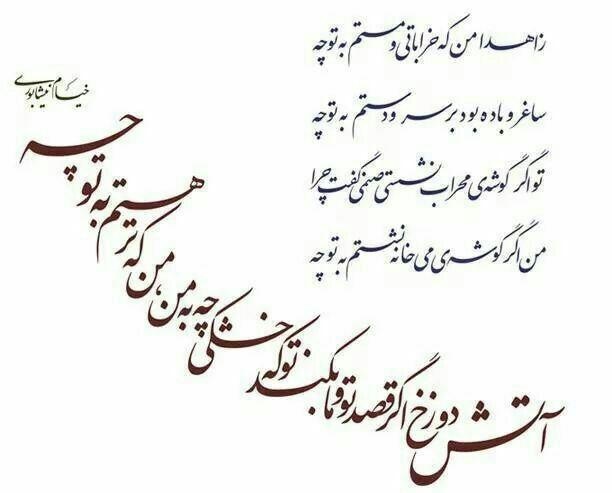 زاهدا من که خراباتی و مستم به تو چه
ساغر و باده بود بر سر و دستم به تو چه
تو اگر گوشه‌ی محراب نشستی صنمی گفت چرا
من اگر گوشه‌ی می خانه نشستم به تو چه
آتش دوزخ اگر قصد تو و ما بکند
تو که خشکی چه به من، من که تر هستم به تو چه
خیام نیشابوری